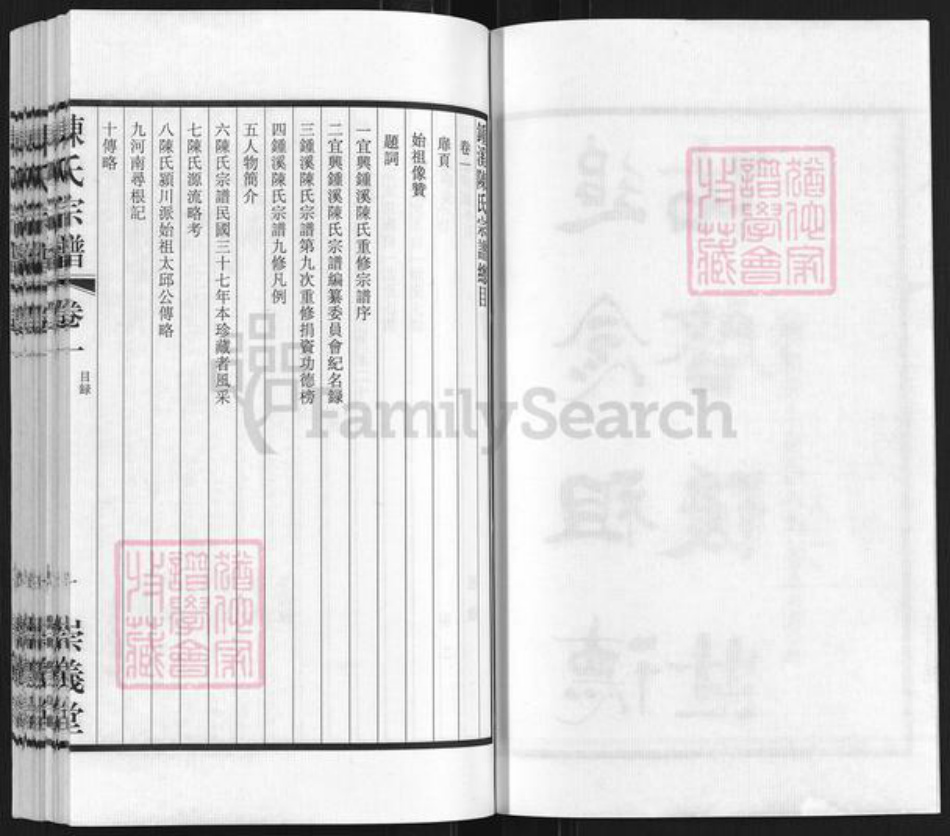 鍾溪陳氏宗譜總目
卷一
扉頁
始祖像贊
題詞
一宜興鍾溪陳氏重修宗譜序
二宜興鍾溪陳氏宗譜編纂委員會紀名錄
三鍾溪陳氏宗譜第九次重修捐資功德榜
四鍾溪陳氏宗譜九修凡例
五人物簡介
六陳氏宗譜民國三十七年本珍藏者風采
七陳氏源流略考
八陳氏潁川派始祖太邱公傳略
九河南尋根記
十傳略
陳氏宗譜 卷一 目録 一 崇義堂
FamilySearch